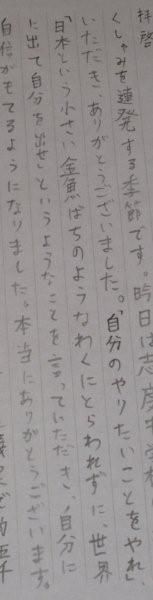 拝啓
くしゃみを連発する季節です。昨日は志度
いただき、ありがとうございました。「自分のやりたいことをやれ」
「日本という小さい金魚ばちのようなわくにとらわれずに、世界
に出て自分を出せ」というようなことを言っていただき、自分に
自信がもてるようになりました。本当にありがとうございます。